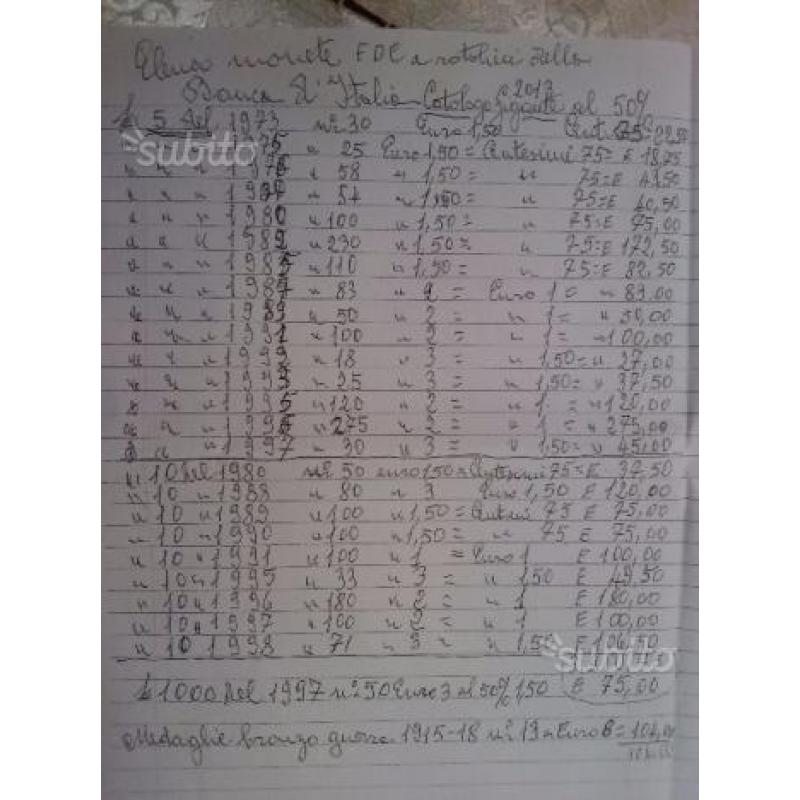 Elenco monete FDC e rotolini della
Banca d'Italia Catalogo Gigante 2017 al 50%
£ 5 del 1973 n° 30 Euro 1,50 Cent. 75 = 22,50
subito
" " " 1975 " 25 Euro 1,50 = Centesimi 75 = E 18,75
" " " 1976 " 58 " 1,50 = " 75 = E 43,50
" " " 19 " 54 " 1,50 = " 75 = E 40,50
" " " 1980 " 100 " 1,50 = " 75 = E 75,00
" " " 1982 " 230 " 1,50 = " 75 = E 172,50
" " " 1985 " 110 " 1,50 = " 75 = E 82,50
" " " 1987 " 83 " 2 = Euro 1 = " 83,00
" " " 1989 " 50 " 2 = " 1 = " 50,00
" " " 1991 " 100 " 2 = " 1 = " 100,00
" " " 199 " 18 " 3 = " 1,50 = " 27,00
" " " 1993 " 25 " 3 = " 1,50 = " 37,50
" " " 1995 " 120 " 2 = " 1 = " 120,00
" " " 199 " 275 " 2 = " 1 = " 275,00
" " " 1997 " 30 " 3 = " 1,50 = " 45,00
" 10 del 1980 n° 50 euro 1,50 = Centesimi 75 = E 37,50
" 10 " 1988 " 80 " 3 Euro 1,50 E 120,00
" 10 " 1989 " 100 " 1,50 = Centesimi 75 E 75,00
" 10 " 1990 " 100 " 1,50 = " 75 E 75,00
" 10 " 1991 " 100 " 1 = Euro 1 E 100,00
" 10 " 1995 " 33 " 3 = " 1,50 E 49,50
" 10 " 1996 " 180 " 2 = " 1 E 180,00
" 10 " 1997 " 100 " 2 = " 1 E 100,00
" 10 1998 " 71 " 3 = " 1,50 E 106,50
subito
£ 1000 del 1997 n° 50 Euro 3 al 50% 1,50 E 75,00
Medaglie bronzo guerra 1915-18 n° 13 a Euro 8 = 104,00